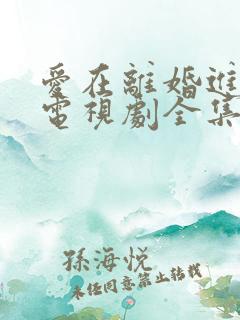 愛在離婚進
電視劇全集
孫海悅
未经同意禁止转载